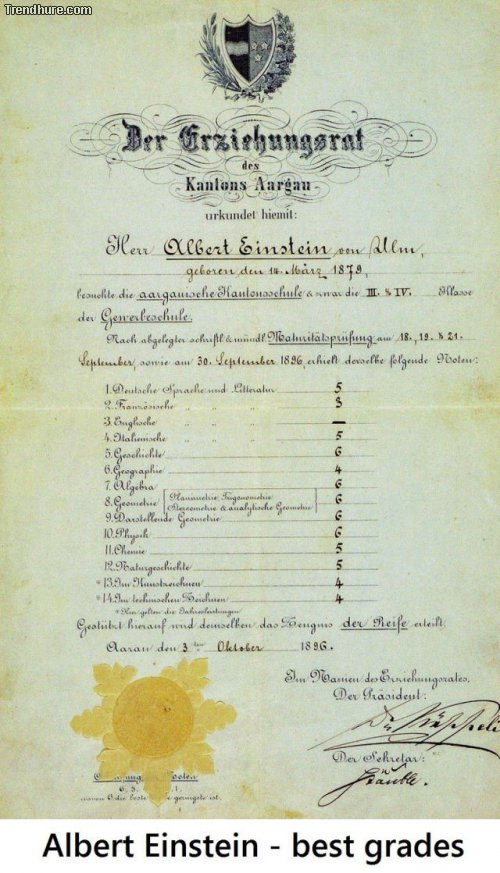 Trendhure.com
Der Erziehungsrat
des
Kantons Aargau
urkundet hiemit:
Herr Albert Einstein von Ulm,
geboren den 14. März 1879,
besuchte die aargauische Kantonsschule & zwar die III. & IV. Klasse
der Gewerbeschule.
Nach abgelegter schriftl. & mündl. Maturitätsprüfung am 18., 19. & 21.
September, sowie am 30. September 1896, erhielt derselbe folgende Noten:
1. Deutsche Sprache und Litteratur 5
2. Französische " " " 3
3. Englische " " " —
4. Italienische " " " 5
5. Geschichte 6
6. Geographie 4
7. Algebra 6
8. Geometrie [Planimetrie, Trigonometrie 6
Stereometrie & analytische Geometrie]
9. Darstellende Geometrie 6
10. Physik 6
11. Chemie 5
12. Naturgeschichte 5
*13. Im Kunstzeichnen 4
*14. Im technischen Zeichnen 4
*Hier gelten die Jahresleistungen
Gestützt hierauf wird demselben das Zeugnis der Reife erteilt.
Aarau den 3ten Oktober 1896.
Im Namen des Erziehungsrates,
Der Präsident:
Der Sekretär:
6, 5, 1,
wovon 6 die beste geringste ist.
Albert Einstein - best grades